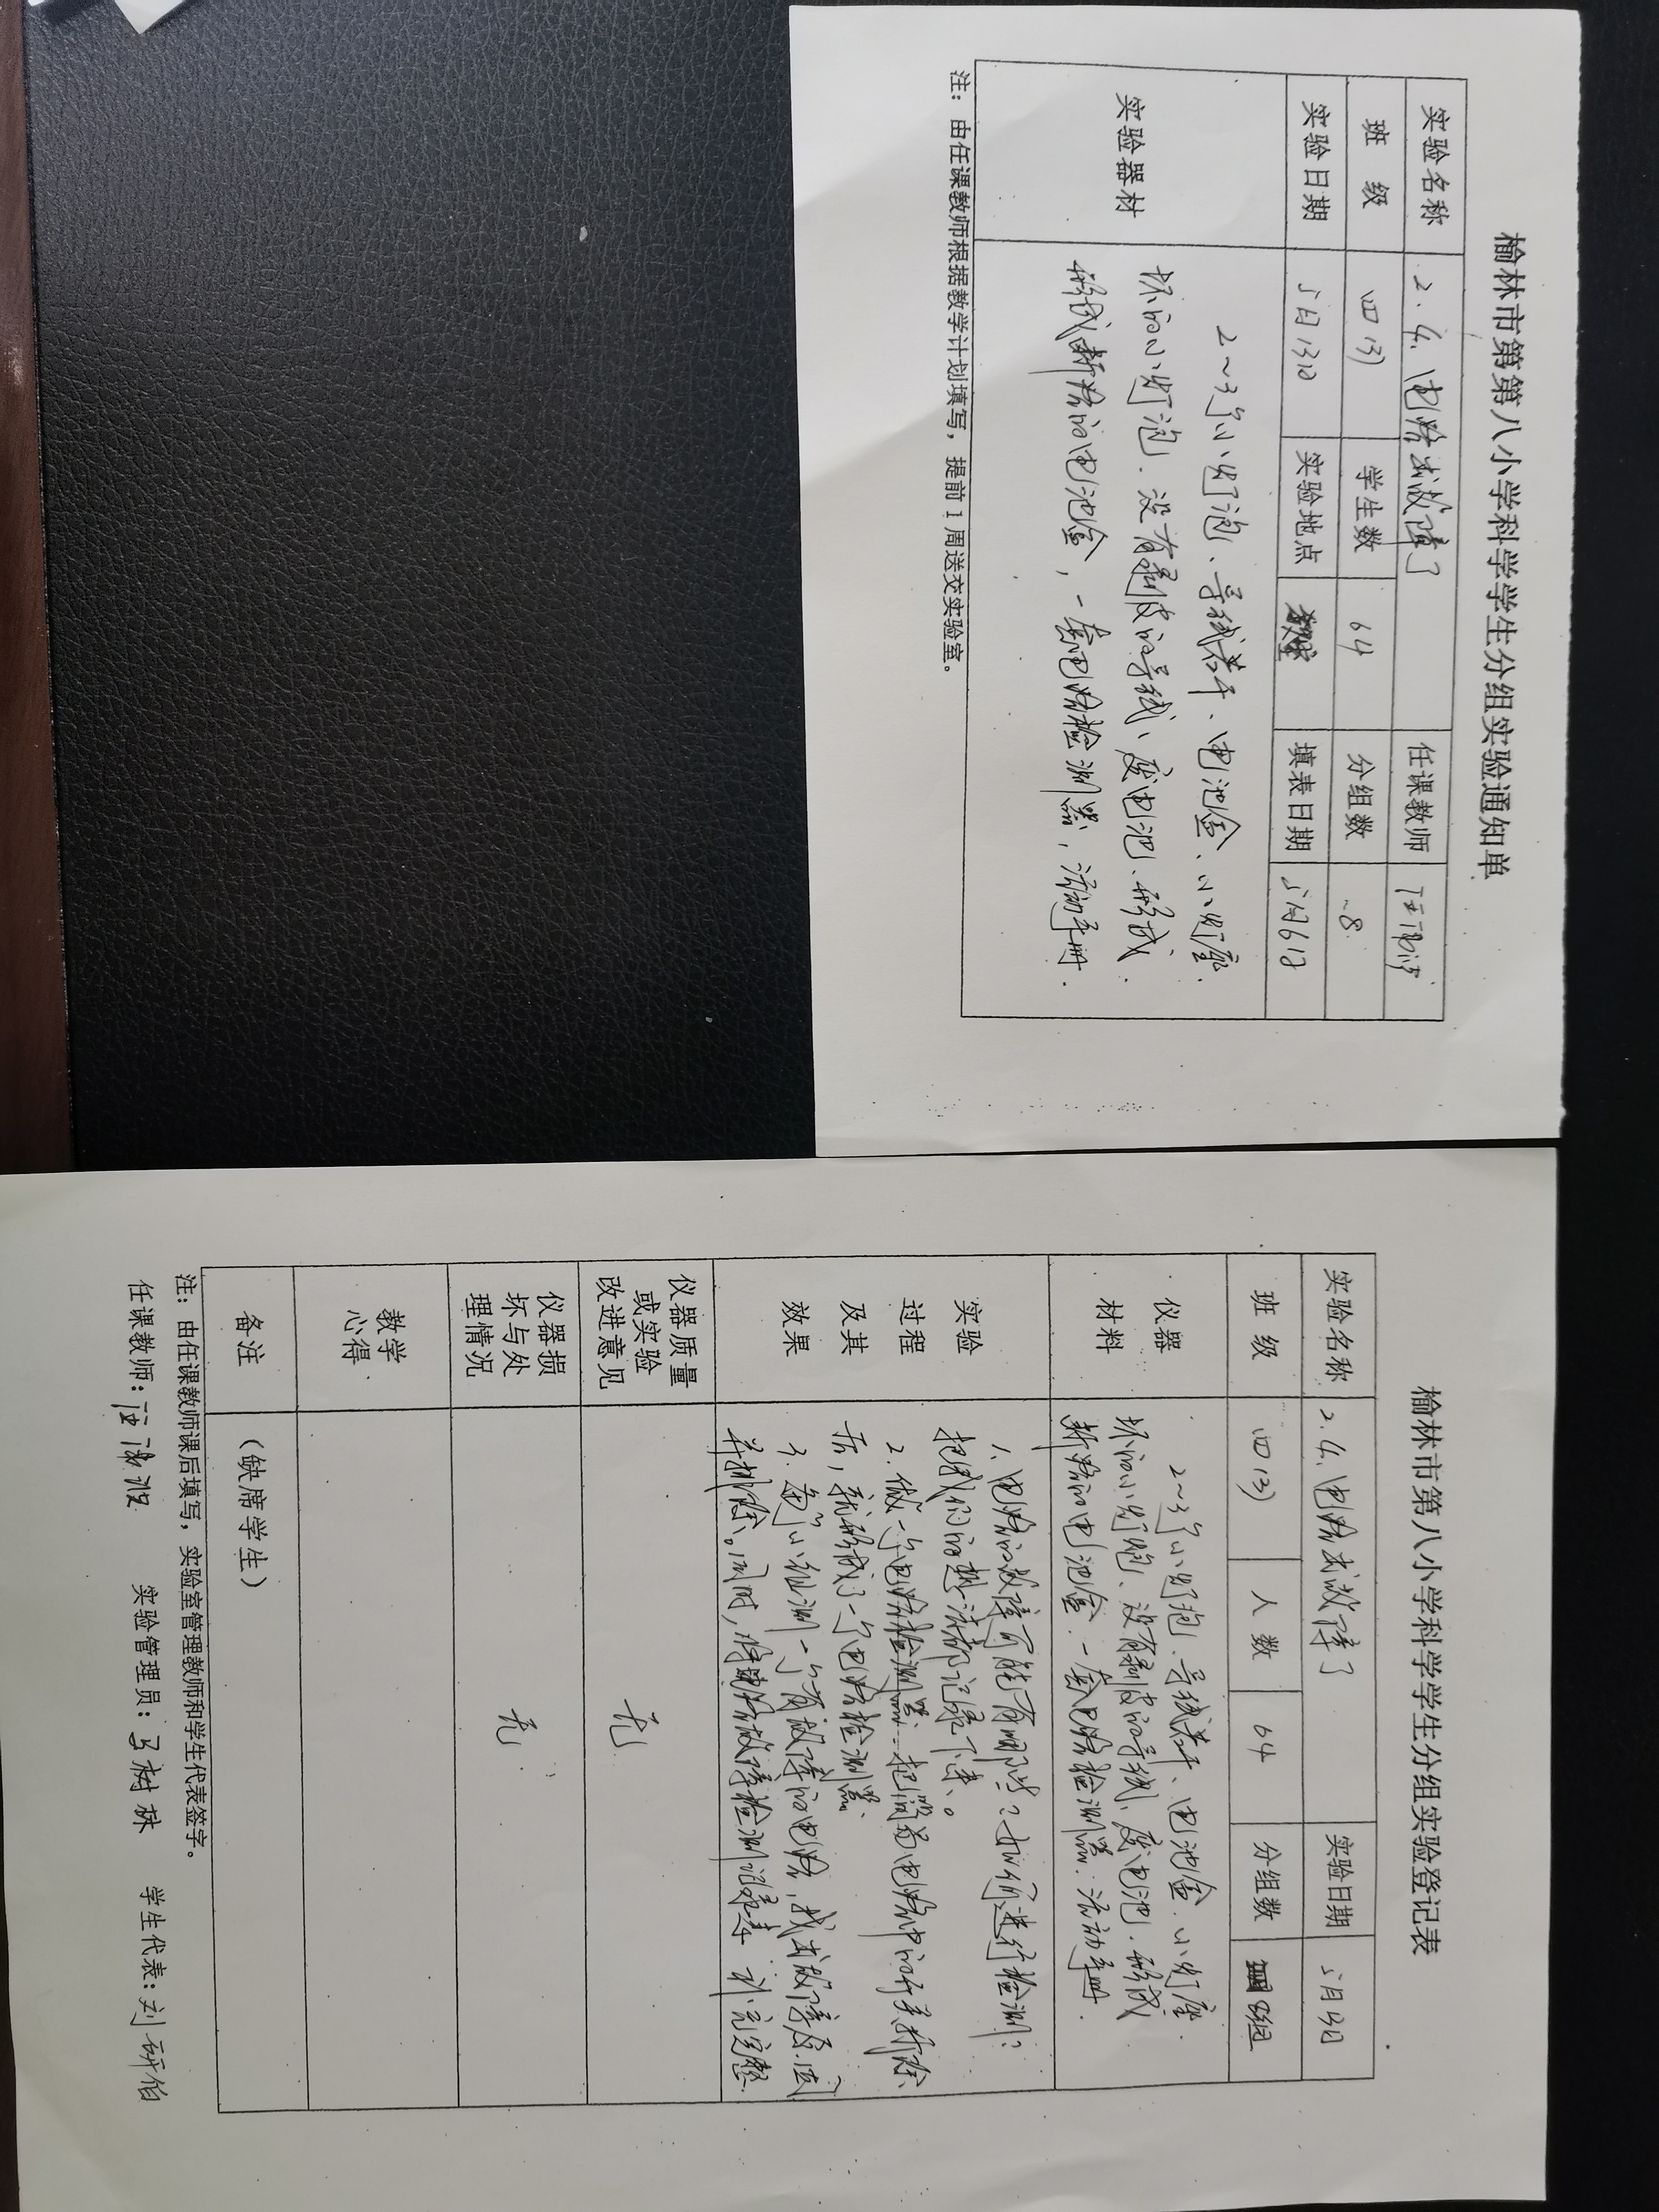 榆林市第第八小学科学学生分组实验通知单
实验名称 2.4.电路出故障了 任课教师
班 级 四(3) 学生数 64 分组数 8
实验日期 5月13日 实验地点 填表日期 5月6日
实验器材
2~3个小灯泡、导线若干、电池盒、小灯座.
坏的小灯泡.没有剥皮的导线、废电池、形成.
形成断路的电池盒，一套电路检测器，活动手册.
注：由任课教师根据教学计划填写，提前1周送交实验室。
榆林市第八小学科学学生分组实验登记表
实验名称 2.4.电路出故障了 实验日期 5月13日
班 级 四(3) 人 数 64 分组数 8组
仪器
材料
2~3个小灯泡、导线若干、电池盒.小灯座.
坏的小灯泡、没有剥皮的导线、废电池.形成
断路的电池盒.一套电路检测器.活动手册.
实验
过程
及其
效果
1、电路的故障可能有哪些?如何进行检测?
把我们的想法都记录下来。
2.做一个电路检测器:把简易电路中的开关拆除
后，就形成了一个电路检测器、
3.每个小组测一个有故障的电路，找出故障原因
并排除。同时，将电路故障检测记录表 补充完整.
仪器质量
或实验
改进意见
无
仪器损
坏与处
理情况
无
教学
心得
备注 (缺席学生)
注：由任课教师课后填写，实验室管理教师和学生代表签字。
任课教师: 实验管理员: 马树林 学生代表: 刘研伯